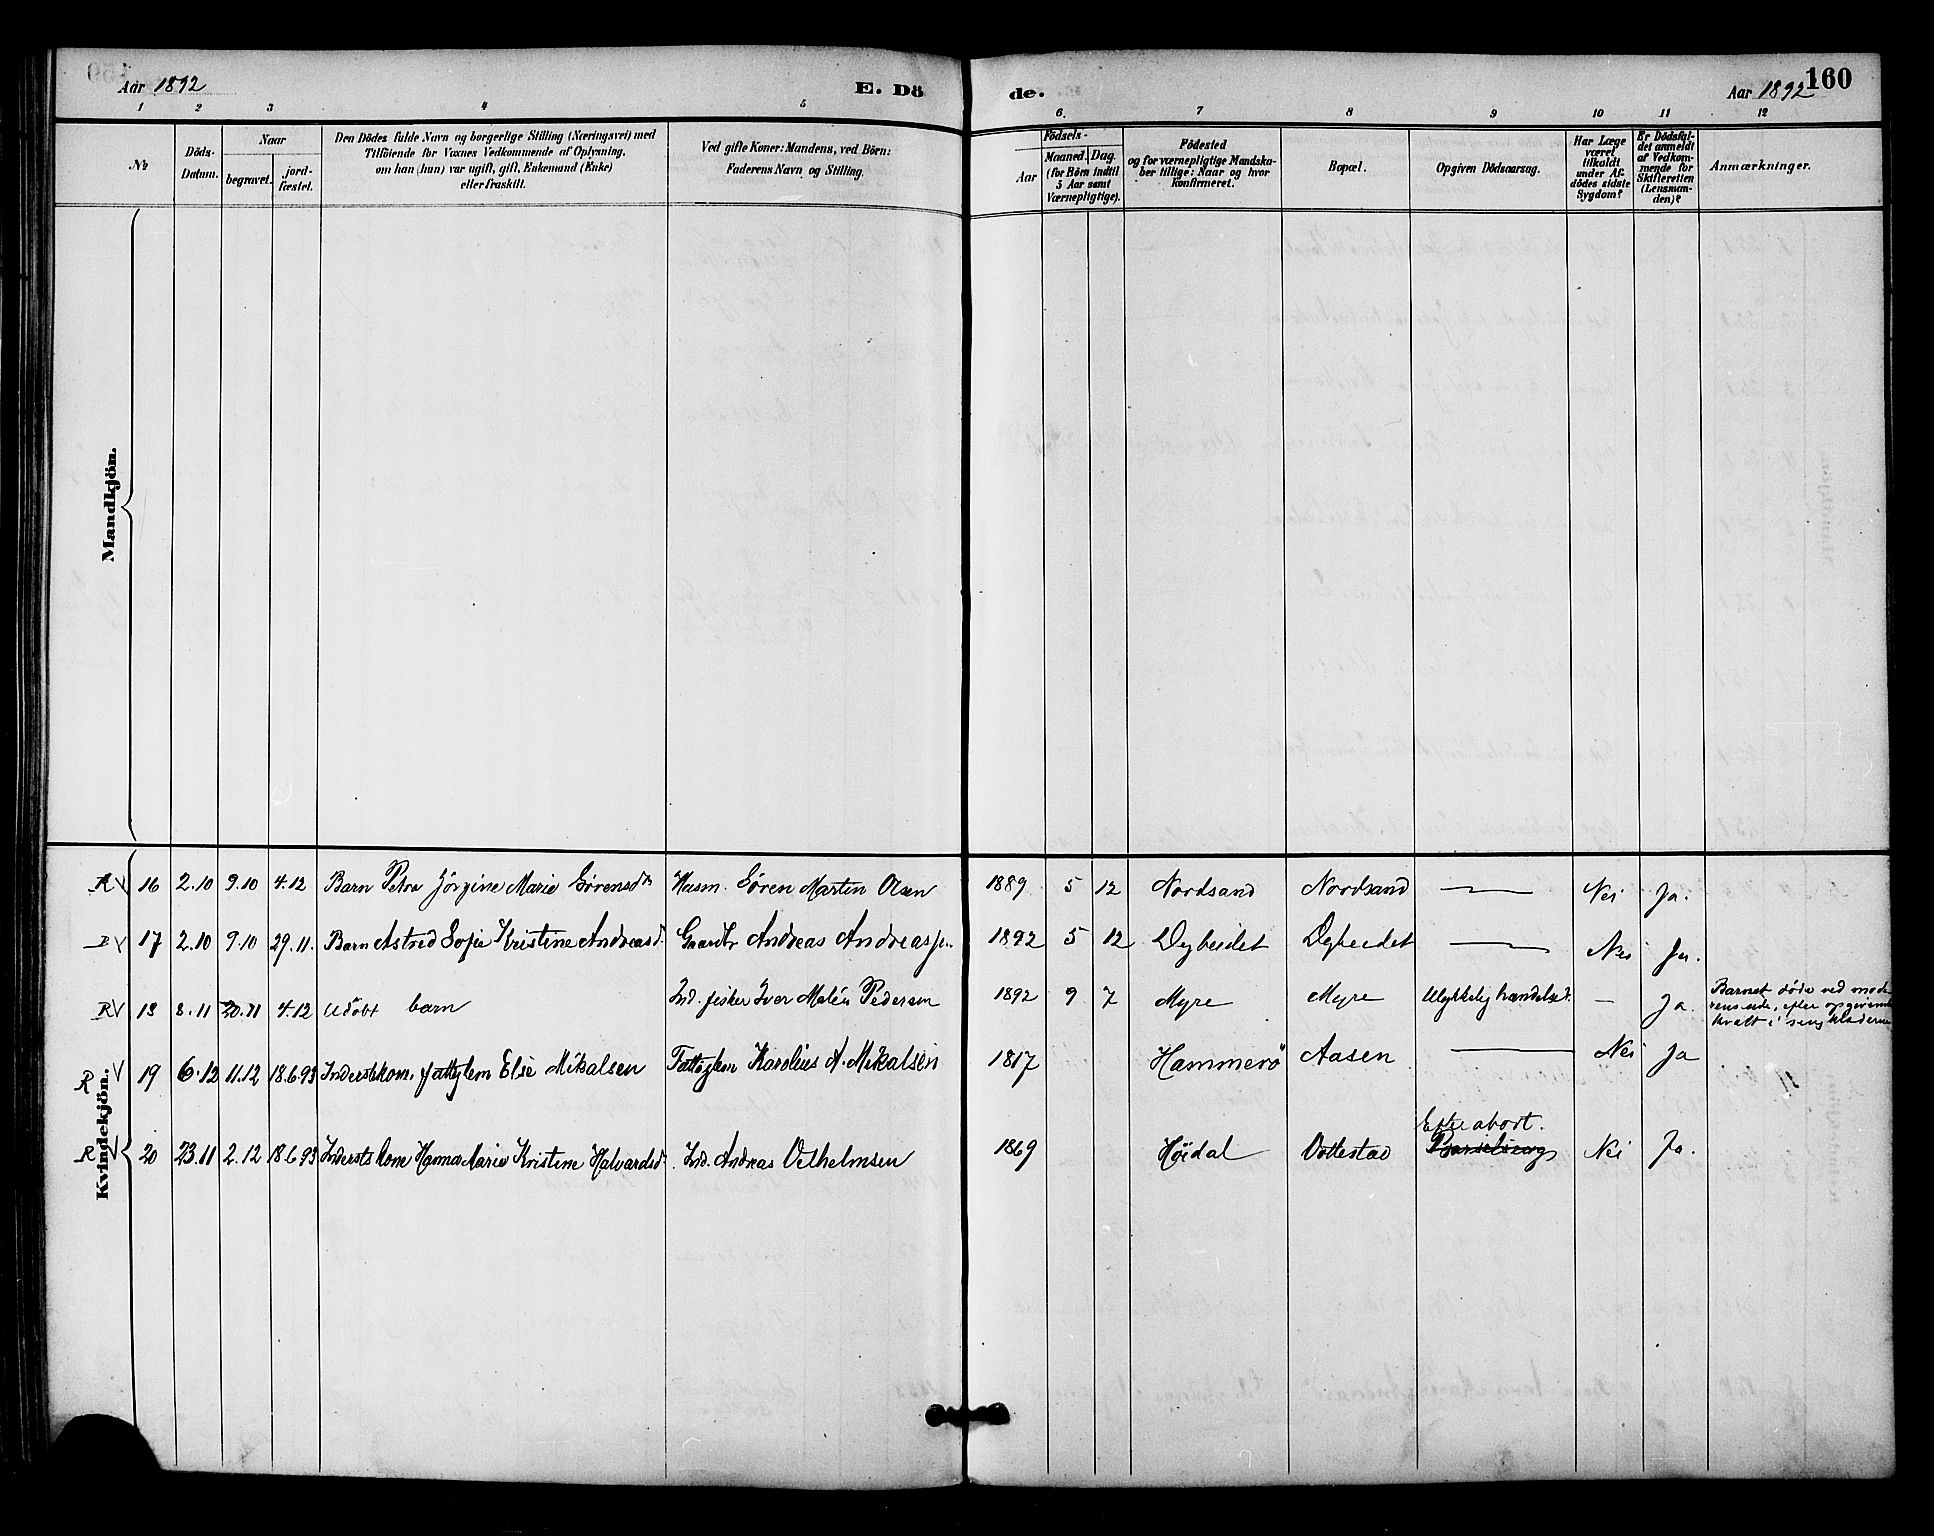 Aar 1892
E. Dö
de.
Aar 1892
160
1 2 3 4 5 6. 7 8 9 10 11 12
No
Döds-
Datum.
Naar
begravet.
jord-
fæstet.
Den Dödes fulde Navn og borgerlige Stilling (Næringsvei) med
Tilföiende for Voxnes Vedkommende af Oplysning,
om han (hun) var ugift, gift, Enkemand (Enke)
eller fraskilt.
Ved gifte Koner: Mandens, ved Börn:
Faderens Navn og Stilling.
Födsels-
Aar
Maaned. Dag.
(for Börn indtil
5 Aar samt
Værnepligtige).
Födested
og for værnepligtige Mandska-
ber tillige: Naar og hvor
Konfirmeret.
Bopæl.
Opgiven Dödsaarsag.
Har Læge
været
tilkaldt
under Af-
dödes sidste
Sygdom?
Er Dödsfal-
det anmeldt
af Vedkom-
mende for
Skifteretten
(Lensman-
den)?
Anmærkninger.
Mandkjön.
Kvindekjön.
R V 16 2.10 9.10 4.12 Barn Petra Jörgine Marie Sörensdtr Husm. Sören Martin Olsen 1889 5 12 Nordsand Nordsand — Nei Ja.
R V 17 2.10 9.10 29.11. Barn Astrid Sofie Kristine Andreasd. Gaardbr Andreas Andreassen 1892 5 12 Dybeidet Dybeidet — Nei Ja.
R V 18 8.11 20.11 4.12 Udöbt barn Ind. fisker Iver Malén Pedersen 1892 9 7 Myre Myre Ulykkelig hændelse. — Ja. Barnet döde ved mode-
rens side, efter opgivende
kvalt i sengklæderne
R V 19 6.12 11.12 18.6.93 Inderstekone, fattiglem Else Mikalsen Fattiglem Karolius A. Mikalsen 1817 Hammerö Aasen — Nei Ja
R V 20 23.11 2.12 18.6.93 Inderstkone Hanna Marie Kristine Halvardsd. Ind. Andreas Vilhelmsen 1869 Höidal Vollestad Efter abort.
Barselseng Nei Ja.